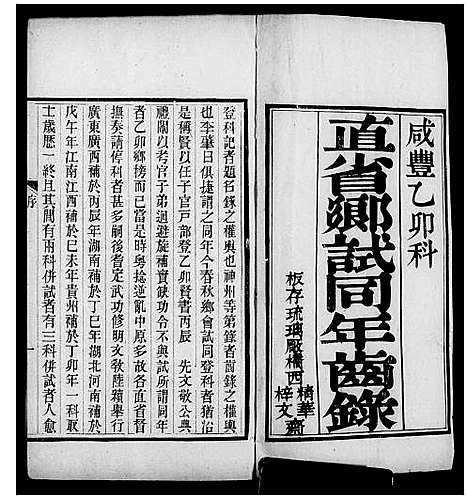 咸豐乙卯科
直省鄉試同年齒錄
板存琉璃厰橋西
精華齋
梓文
登科記者題名錄之權輿也神州等第錄者齒錄之權輿
也李肇曰俱捷謂之同年今春秋鄉會試同登科者猶沿
是稱賢以任子官戶部登乙卯賢書丙辰　先文敬公典
禮闈以考官子弟迴避旋補實缺功令不與試所謂同年
者乙卯鄉榜而已當是時粵捻逆亂中原多故各直省督
撫奏請停科者甚多嗣後耆定武功修明文教陸續舉行
廣東廣西補於丙辰年湖南補於丁巳年湖北河南補於
戊午年江南江西補於己未年貴州補於丁卯年一科取
士歲歷一終且其閒有兩科併試者有三科併試者人愈
序
一